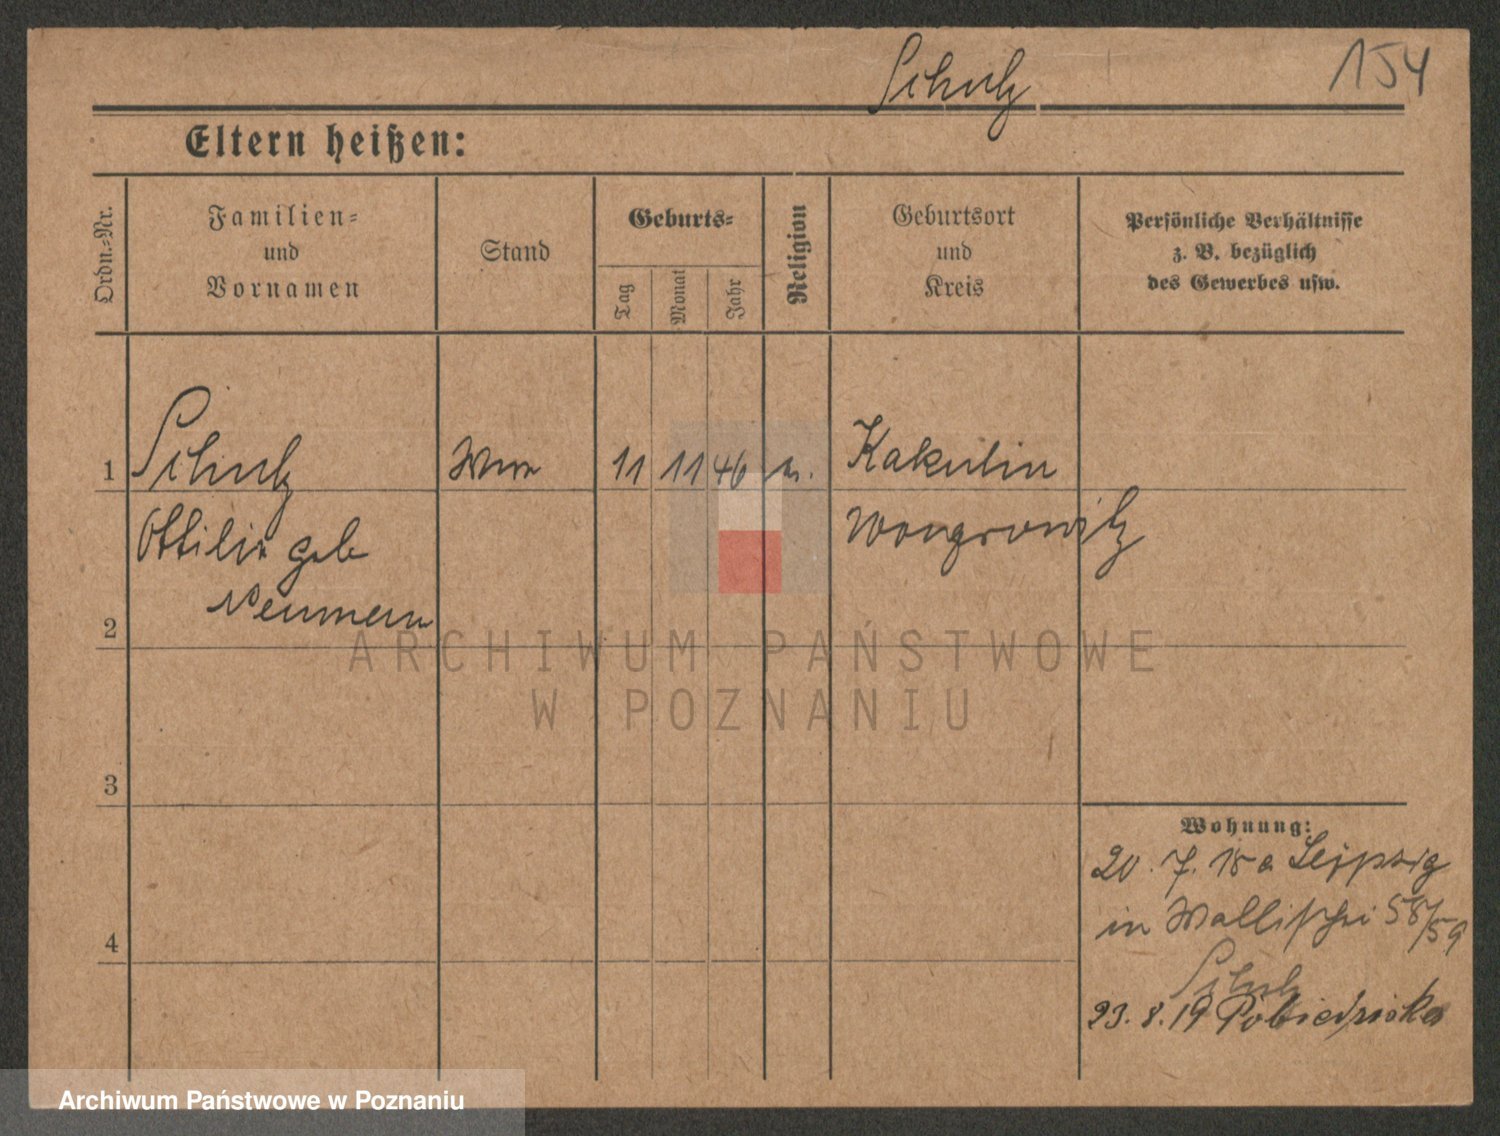 Schulz
154
Eltern heißen:
Ordn.-Nr.
Familien-
und
Vornamen
Stand
Geburts-
Tag
Monat
Jahr
Religion
Geburtsort
und
Kreis
Persönliche Verhältnisse
z. B. bezüglich
des Gewerbes usw.
1 Schulz Wwe 11 11 46 Kakulin
Ottilie geb Wongrowitz
Neumann
2
3
4
ARCHIWUM PAŃSTWOWE
W POZNANIU
Wohnung:
20. 7. 18 a Leipzig
in Wallischei 58/59
Schulz
23. 8. 19 Pobiedziska
Archiwum Państwowe w Poznaniu